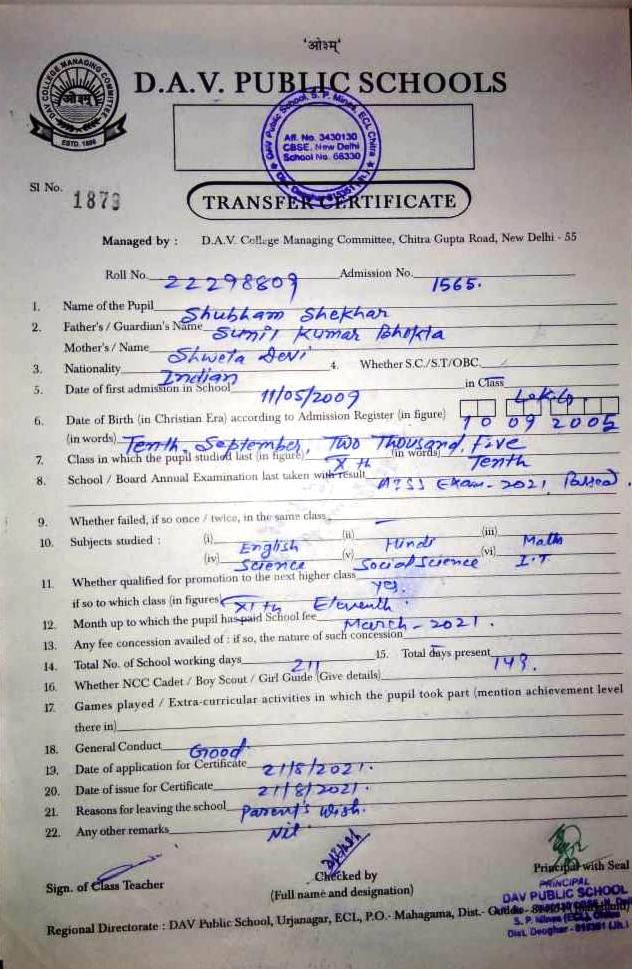 'ओ३म्'
DAV COLLEGE MANAGING COMMITTEE
ओ३म्
ESTD. 1886
D.A.V. PUBLIC SCHOOLS
DAV Public School, S. P. Mines, ECL, Chitra
Aff. No. 3430130
CBSE, New Delhi
School No. 66330
Dist. Deoghar - 815351 (Jh.)
Sl No. 1879
TRANSFER CERTIFICATE
Managed by : D.A.V. College Managing Committee, Chitra Gupta Road, New Delhi - 55
Roll No. 22298809 Admission No. 1565.
1. Name of the Pupil Shubham Shekhar
2. Father's / Guardian's Name Sunil Kumar Bhokta
Mother's / Name Shweta Devi
3. Nationality Indian 4. Whether S.C./S.T/OBC.
5. Date of first admission in School 11/05/2009 in Class
6. Date of Birth (in Christian Era) according to Admission Register (in figure) 10 09 2005
(in words) Tenth, September, Two Thousand Five
7. Class in which the pupil studied last (in figure) Xth (in words) Tenth
8. School / Board Annual Examination last taken with result Exam-2021 Passed.
9. Whether failed, if so once / twice, in the same class
10. Subjects studied : (i) English (ii) Hindi (iii) Math
(iv) Science (v) Social Science (vi) I.T
11. Whether qualified for promotion to the next higher class yes.
if so to which class (in figures) XIth Eleventh.
12. Month up to which the pupil has paid School fee March-2021.
13. Any fee concession availed of : if so, the nature of such concession
14. Total No. of School working days 211 15. Total days present 143.
16. Whether NCC Cadet / Boy Scout / Girl Guide (Give details)
17. Games played / Extra-curricular activities in which the pupil took part (mention achievement level
there in)
18. General Conduct Good.
19. Date of application for Certificate 21/8/2021.
20. Date of issue for Certificate 21/8/2021.
21. Reasons for leaving the school Parent's wish.
22. Any other remarks Nil
Sign. of Class Teacher
Checked by
(Full name and designation)
Principal with Seal
PRINCIPAL
DAV PUBLIC SCHOOL
S. P. Mines (ECL), Chitra
Dist. Deoghar - 815351 (Jh.)
Regional Directorate : DAV Public School, Urjanagar, ECL, P.O.- Mahagama, Dist.-